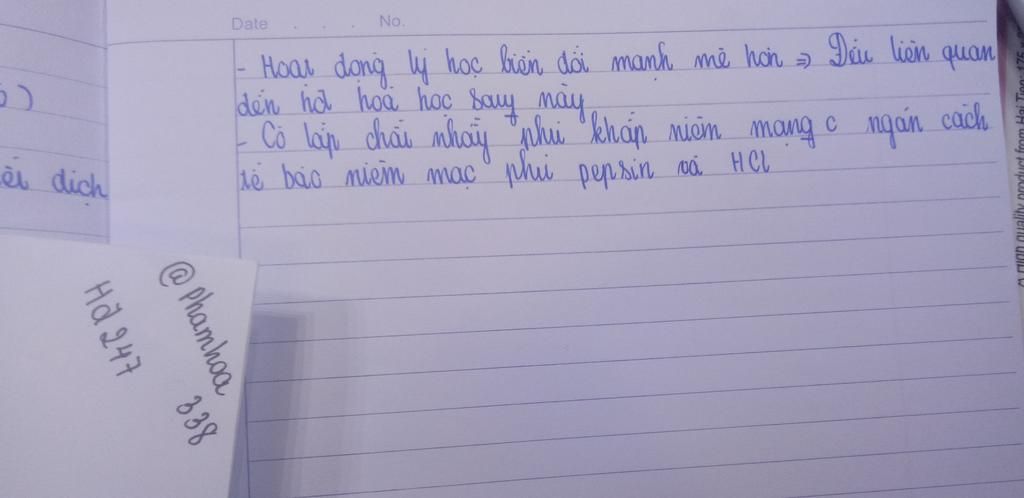 Date . . . No.
- Hoạt động lý học biến đổi mạnh mẽ hơn => Đều liên quan
đến hđ hoá học sau này
- Có lớp chất nhầy phủ khắp niêm mạng c ngăn cách
tế bào niêm mạc phủ pepsin và HCl
ối dịch
@phamhoa
338
Hđ247